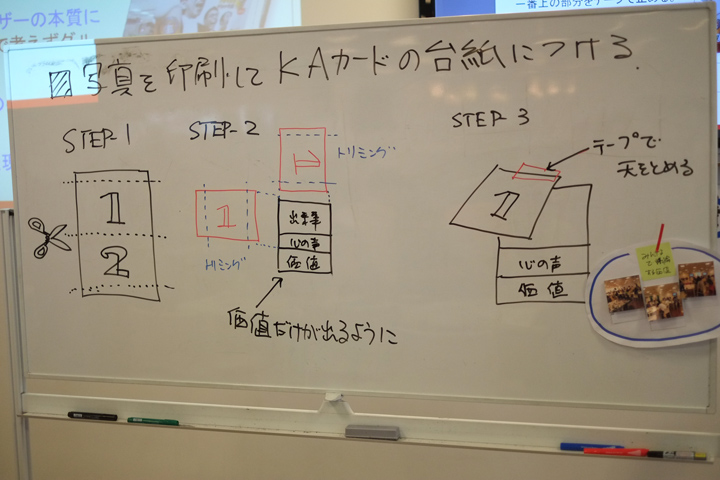 ザーの本質に
一番上の部分をテープで止める。
写真を印刷して KAカードの台紙につける.
STEP-1
1
2
STEP-2
1
トリミング
1
トリミング
出来事
心の声
価値
価値だけが出るように
STEP-3
テープで
天をとめる
1
心の声
価値
みんな